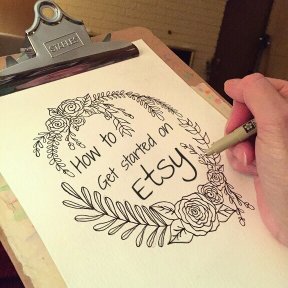 How to
Get started on
Etsy